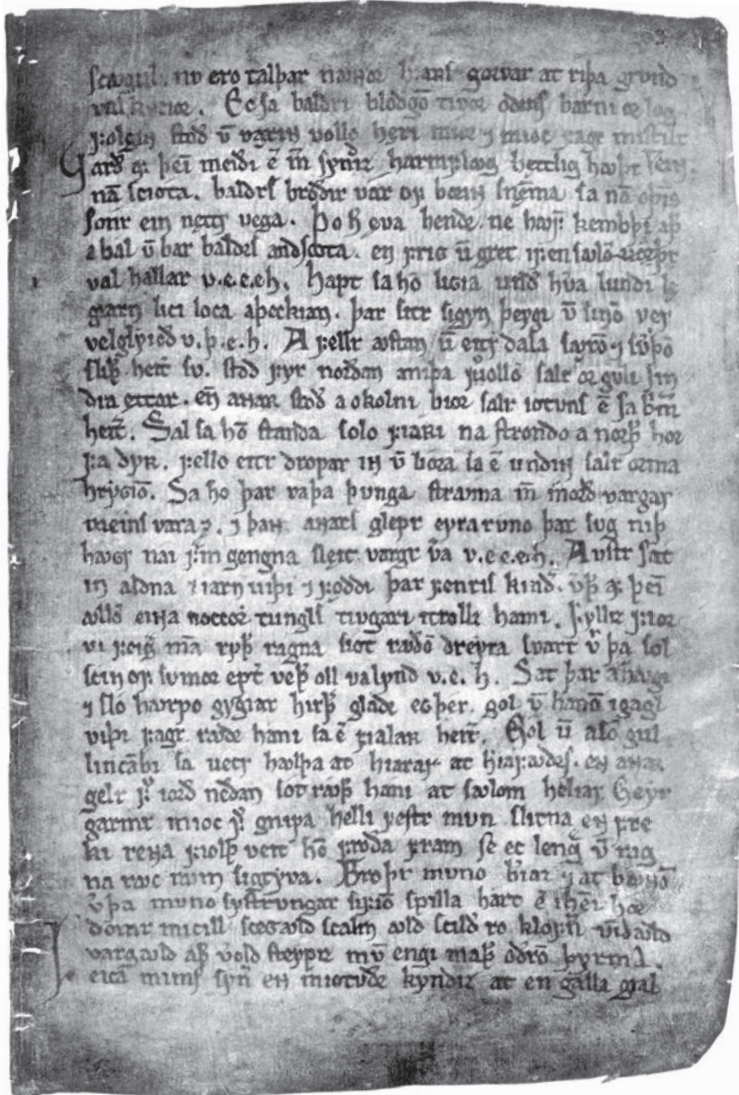 scaꜹgul. nv ero talþar naɴor herianſ gorvar at riþa grvnd
valkyrior. Ec ſa baldri blóðgō tivor oðinſ barni ørlog
folgin ſtóð v̄ vaxiɴ vollo hęri mior ⁊ mioc fagr miſtilt
Varð af þei meiði ē m̄ ſyndiz harmflꜹg hęttlig hꜹþr
nā ſcióta. baldrſ broðir var of boriɴ ſnēma ſa nā oþīſ
ſonr ein nęttr vega. Þo h̄ ęva hendr ne hꜹfuþ kembþi aþ
a bal v̄ bar baldrſ andſcota. en frig v̄ gret ifenſꜹlō
val hallar v.e.e.eh. Hapt ſa hō liɢia undir hvera lundi lę
giarn lici loca aþeckian. þar ſitr ſigyn þeygi v̄ ſinō ver
velglyioð v.þ.e.h. A fellr ꜹſtan v̄ eitr dala ſꜹxō ⁊ ſv̄þō
ſliþr heitir ſv. ſtoð fyr norðan aniþa vollō ſalr ór gulli ſin
dra ęttar. en aɴar ſtoð a okolni bior ſalr iotunſ ē ſa brīm
heit͛. Sal ſa hō ſtanda ſolo fiaʀi na ſtrondo a norþr hor
fa dyʀ. fello eitr dropar iɴ v̄ lióra ſa ē undiɴ ſalr orma
hrygiō. Sa hō þar vaþa þunga ſtrꜹma m̄ meinſvara ⁊ morðvargar
⁊ þaɴ aɴarſ glepr eyrarúno þar ſug niþ
hꜹɢr nai framgengna ſleit vargr v̄a v.e.e.eh. Auſtr ſat
in aldna iiarnviþi ⁊ fǫddi þar fenriſ kindir. v̄þr af þeī
ꜹllō eina noccorr tungls tiugari itrollz hami. Fylliz fior
vi feigra m̄a ryþr ragna ſiot rꜹðō dreyra ſvart v̄ þa ſol
ſcin of ſumor ept͛ veþr oll valynd v.e.h. Sat þar ahꜹgi
⁊ ſlo hꜹrpo gygiar hirþir glaðr egþer. gol v̄ hanō igagl
viþi fagr rꜹðr hani ſa ē fialaʀ heit͛. Gol v̄ aſō gul
lincābi ſa vecr hꜹlþa at hiarar at heriafꜹðrſ. en aɴaʀ
gelr f͛ iorð neðan ſot rꜹþr hani at ſꜹlom heliar. Geyr
garmr mioc f͛ gnipa helli feſtr mun ſlitna en fre
ki reɴa fiolþ veit hō frǫða fram ſé ec lengra v̄ rag
na rꜹc rꜹm ſigtyva. Brǫþr muno beriaz ⁊ at bꜹnō
v̄þa muno ſyſtrungar ſifiō ſpilla hart ē iheī hór
dómr micill ſceɢꜹld ſcalm ꜹld ſcildir ro klofnir vindꜹld
vargꜹld aþr v̄old ſteypiz mvn engi maþr oðrō þyrma.
Leica mimſ ſyn͛ en miotuðr kyndiz at en galla gial